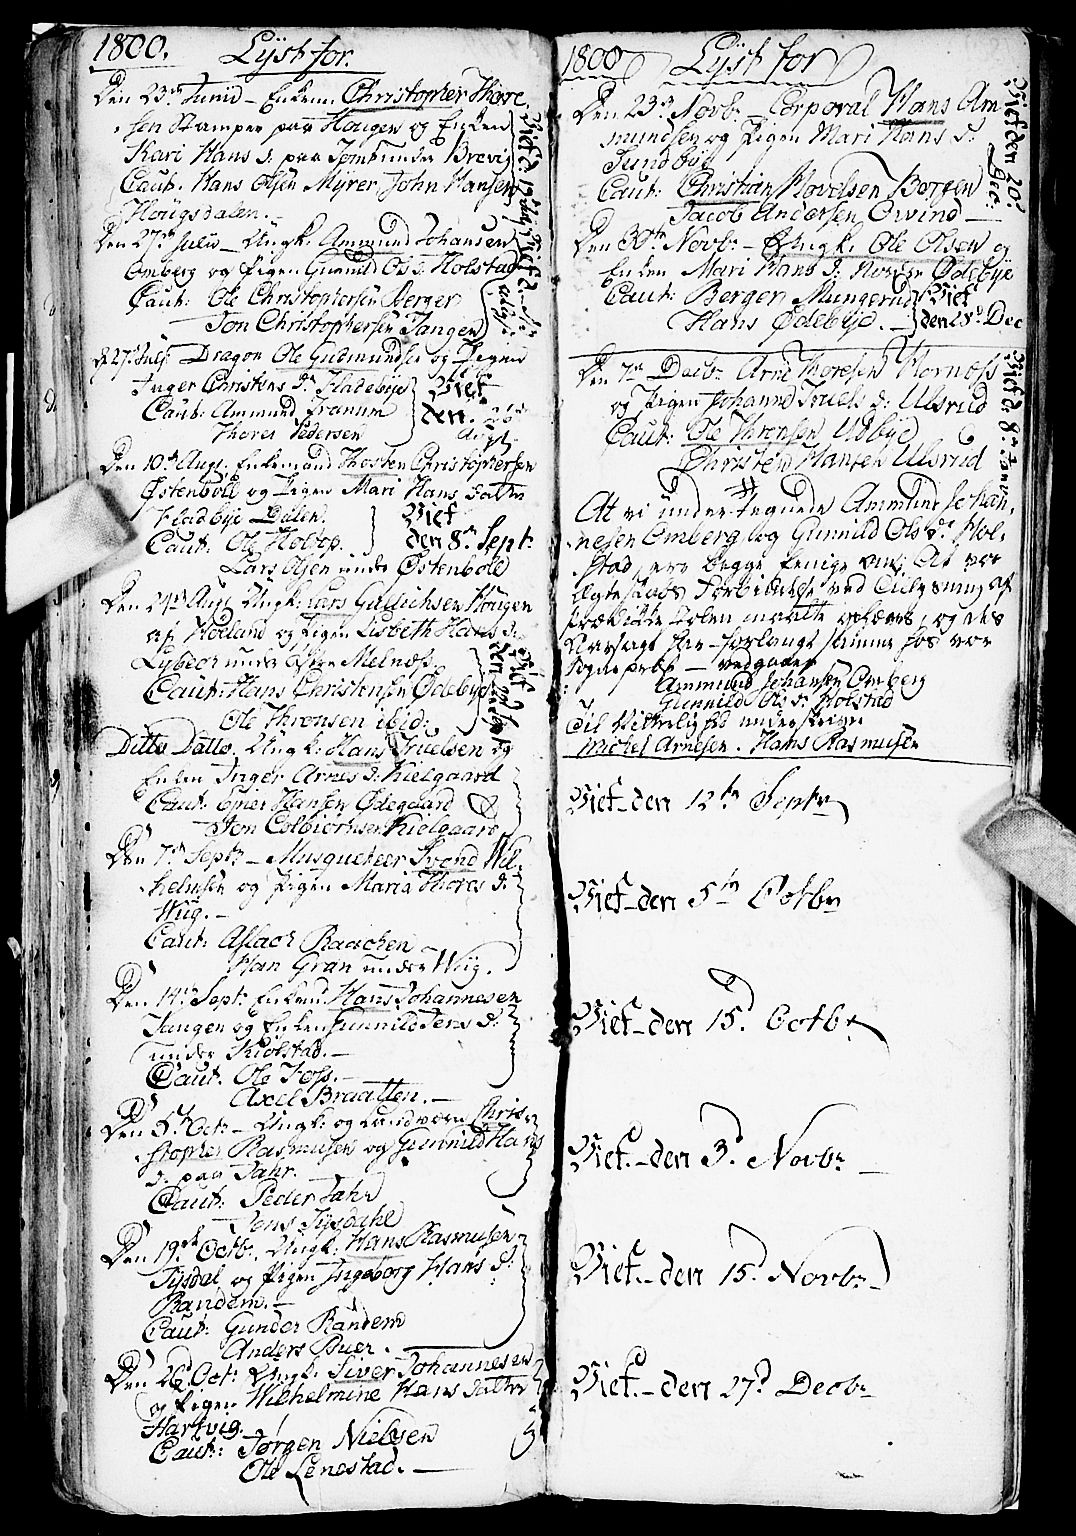 1800. Lyst for.
Den 23de Junii - Enkem: Christopher Thore-
sen Stamper paa Hougen og Enken
Kari Hans D: paa Tomt under Brevig
Caut. Hans Olsen Myrer, John Hansen
Hougsdalen. -
Viet d: 19de
Den 27de Julii - Ungk: Ammund Johansen
Omberg og Pigen Gunnild Ols D: Holstad
Caut: Ole Christophersen Berger
Jon Christophersen Tangen
d. 27 Julj: Dragon Ole Gudmundsen og Pigen
Inger Christens Dr Fladebye
Caut: Ammund Tranum
Thorer Pedersen
Viet
den. 26de
Augt.
Den 10de Augt. Enkemand Thosten Christophersen
Østenbøll og Pigen Mari Hans Datter
Fladbye Dalen.
Caut: Ole Holtop.
Lars Olsen under Østenbøle
Viet
den 8de Sept:
Den 24de Augt Ungk: Lars Gullichsen Hougen
af Høeland og Pigen Lisbeth Hans D:
Lybeck under Melnæss
Caut: Hans Christensen Ødebye
Ole Thronsen ibid:
Viet
Ditto Datto. Ungk: Hans Truelsen og
Enken Inger Arnes D: Kielgaard
Caut: Hansen Ødegaard
Jon Colbiørnsen Kielgaard
Den 7de Septr - Musqueteer Svend Wil-
helmsen og Pigen Maria Thores D:
Wiig. -
Caut: Aslach Raachen
Han Gran under Wiig.
Den 14de Septr Enkem: Hans Johannesen
Tangen og Enken Gunnild Jens D:
under Kiølstad. -
Caut. Ole Foss. -
Axel Braatten. -
Den 5te Octr - Ungk: og Landværn Chris-
stopher Rasmusen og Gunnild Hans
D. paa Jahr.
Caut: Peder Jahr
Jens Tysdahl
Den 19de Octb. Ungk: Hans Rasmusen
Tysdal og Pigen Ingeborg Hans D:
Randem. -
Caut: Gunder Randem
Anders Buer.
Den 26d Oct: Ungk: Siver Johannesen
og Pigen Wilhelmine Hans Datter
Hartvig. -
Caut: Jørgen Nielsen
Ole Lenestad. -
1800 Lyst for
Den 23de Novbr Corporal Hans Am-
mundsen og Pigen Mari Hans D:
Sundbye
Caut: Christian Hovelsen Borgen
Jacob Andersen Qwind -
Viet den 20d
Dec:
Den 30te Novbr - Ungk: Ole Olsen og
Enken Mari Hans D: Ødebye
Caut: Berger Mungerud
Hans Ødebye. -
Viet
den 28d Dec
Den 7de Decbr Arne Thoresen Hornæss
og Pigen Johanne Truels D: Ulsrud
Caut: Ole Thronsen Udbye
Christen Hansen Ulsrud
Viet d: 8de Janv
At vi undertegnede Ammund Johan-
nesen Omberg og Gunnild Ols Dr Hol-
stad, ere begge eenige om, at vor
Ægteskabs Forbindelse ved Tillysning af
Prædikke Stolen maatte ophæves, og dets
forlangt hos vor
Sognepræst - vedgaaer
Ammund Johansen Omberg
Gunnild Ols D: Holstad
Til Vitterlighed underskriver
Michel Arnesen. Hans Rasmusen
Viet - den 12te Septr
Viet - den 5te Octbr
Viet - den 15d Octbr
Viet. - den 3d Novbr -
Viet. - den 15d Novbr
Viet. - den 27d Decbr